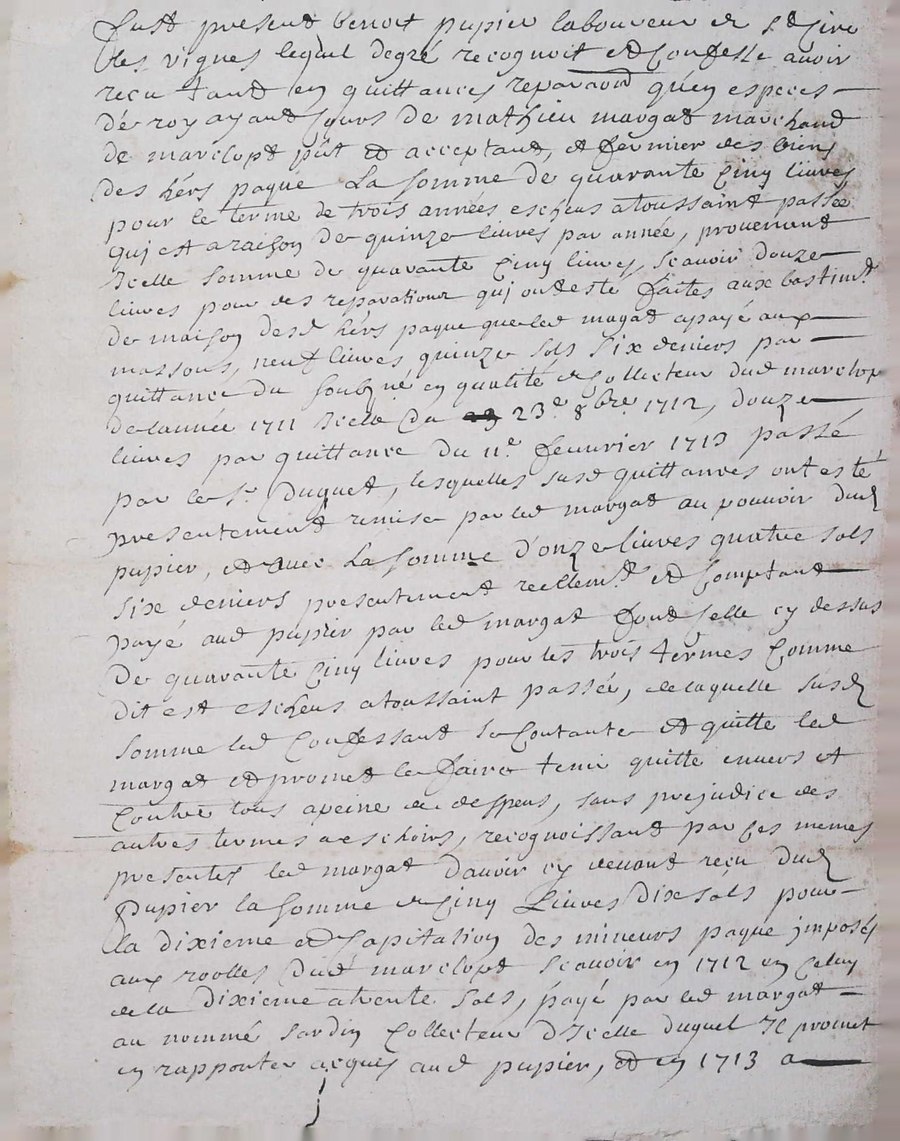 fust present benoit pupier laboureur de St Cire
les vignes lequel degré recognoit et Confesse avoir
reçu tant en quittances reparaon qu'en especes
de roy ayant Cours de mathieu margat marchand
de marclopt pñt et acceptant, et fermier des biens
des hérs paque La somme de quarante Cinq liures
pour le terme de trois années escheus atoussaint passée
qui est araison de quinze liures par année, prouenent
Icelle somme de quarante Cinq liures, scauoir douze
liures pour des reparations qui ont esté faites aux bastimts
de maison desd hérs paque que led magat apayé aux
massons, neuf liures quinze sols six deniers par
quittance du soubzné en qualité de Collecteur dud marclop
de lannée 1711 Icelle du 23e 8bre 1712, douze
liures par quittance du 11e feuurier 1713 passé
par le Sr Duguet, lesquelles susd quittances ont esté
presentement remise par led margat au pouuoir dud
pupier, et auec La somme d'onze liures quatre sols
six deniers presentement reellemt et Comptant
payé aud pupier par led margat font Celle cy dessus
De quarante Cinq liures pour les trois termes Comme
dit est escheus atoussaint passée, de laquelle susd
somme led Confessant se Contante et quitte led
margat et promet le faire tenir quitte enuers et
Contre tous apeine de despens, sans prejudice des
autres termes aeschoirs, recognoissant par Ces memes
presentes led margat d'auoir cy deuant reçu dud
pupier la somme de Cinq Liures dix sols pour
la dixieme et Capitation des mineurs paque imposés
aux roolles dud marclopt scauoir en 1712 en Celuy
de la Dixieme atrente sols, payé par led margat
au nommé Jardin Collecteur d'Icelle duquel Il promet
en rapporter acquis aud pupier, et en 1713 a